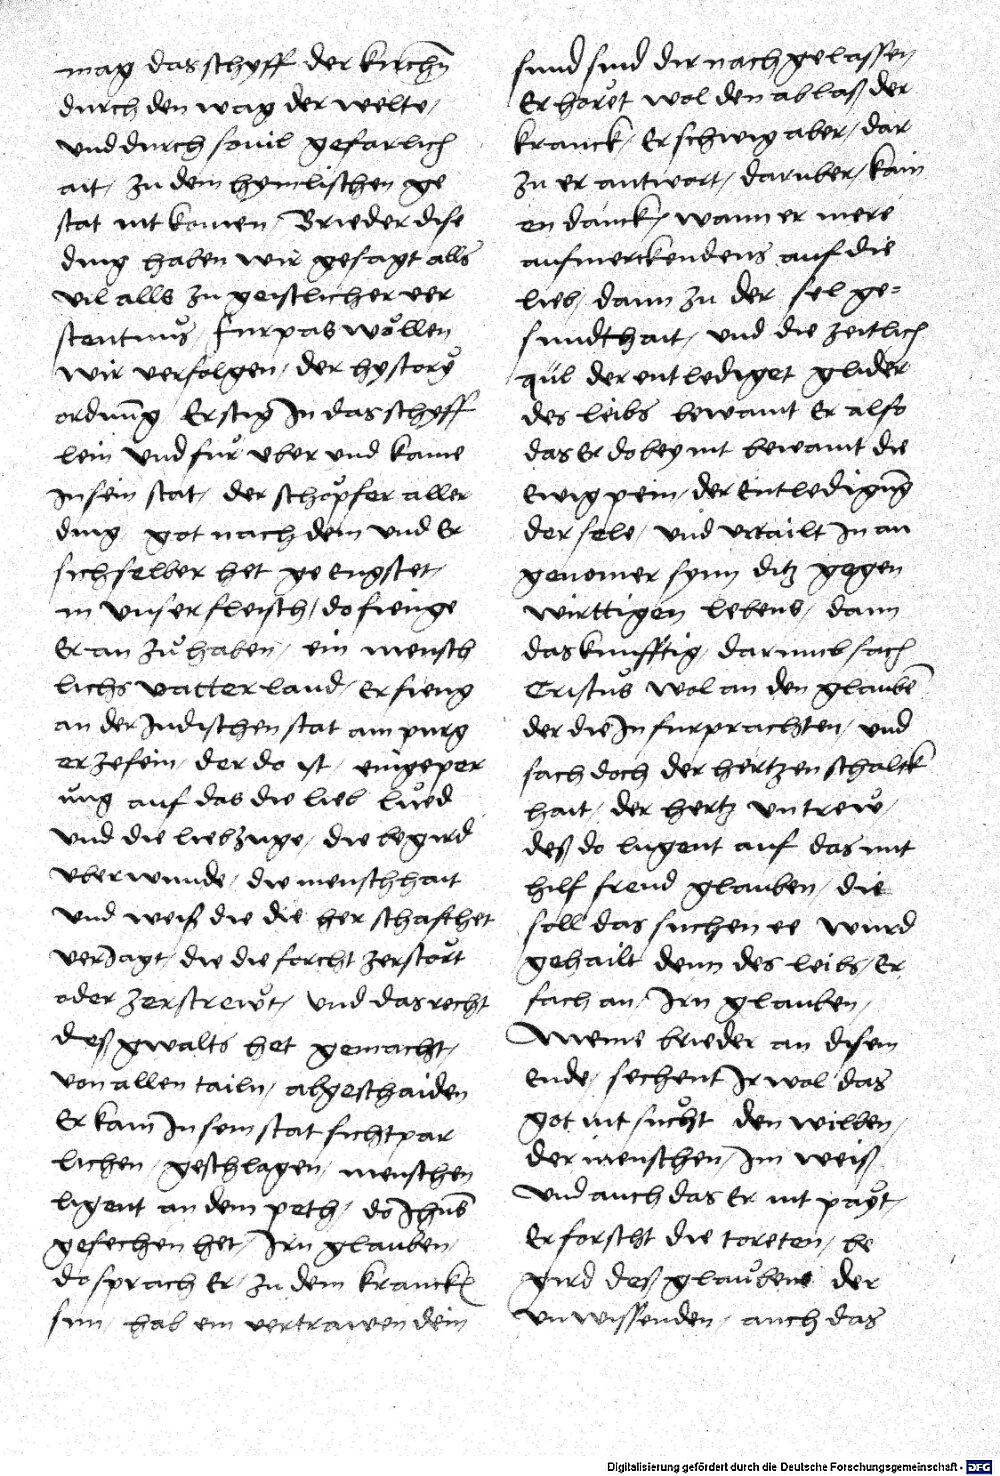 mag das schyff der kirchn̄
durch den wag der welte /
vnd durch souil gefarlich
ait / zu dem hymlischen ge
stat nit komen / Brieder dise
ding haben wir gesagt alls
vil alls zu geistlicher ver
stentnus / furpas wöllen
wir verfolgen / der hystorÿ
ordnūg Er stig In das schyff
lein vnd fur vber vnd kame
In sein stat / der schöpfer aller
ding got nach dem vnd Er
sich selber het ge engstet /
in vnser fleisch / do fienge
Er an zů haben / ein mensch
lichs vatter land / Er fieng
an der Judischen stat ain purg
er ze sein / der do ist / eingeper
ung auf das die lieb
vnd die lieb zuge / die begird
vber wunde / die menschhait
vnd weiß die die her schaft het
verJagt / die die forcht zerstört
oder zerstrewt / vnd das recht
deß gwalts het gemacht /
von allen tailn / abgeschaiden
Er kam In sein stat sichtpar
lichen / geschlagen / menschen
ligent an dem peth / do Jhūs
gesechen het / Irn glauben /
do sprach Er / zu dem krancken
sun / hab ein vertrawen dein
sund sind dir nach gelassen
Er höret wol den ablaß der
kranck / Er schwig aber / dar
zu er antwort / daruber / kain
en danck / wann er mere
aufmerckendens auf die
lieb / dann zu der sel ge=
sundthait / vnd die zeitlich
qül der entlediget glider
des leibs bewaint Er also
das Er do bey nit bewaint die
Ewig pein / der Entledigūg
der sele / vnd vrtailt In an
genomer synn ditz gegen
wirttigen lebens / dann
das kunfftig / darumb sach
Cristus wol an den glauben
der die In furprachten / vnd
sach doch der hertzen schalck
hait / der hertz vntrew /
deß do lugent auf das mit
hilf frend glauben / die
soll das suchen ee wurd
gehailt denn des leibs / Er
sach an / Irn glauben /
Meine brieder an disem
Ende / sechent Ir wol das
got nit sücht den willen /
der menschen / Im weiß
vnd auch das Er nit payt /
Er forscht die toreten / be
gird deß glaubens der
vnwissenden / auch das
Digitalisierung gefördert durch die Deutsche Forschungsgemeinschaft - DFG